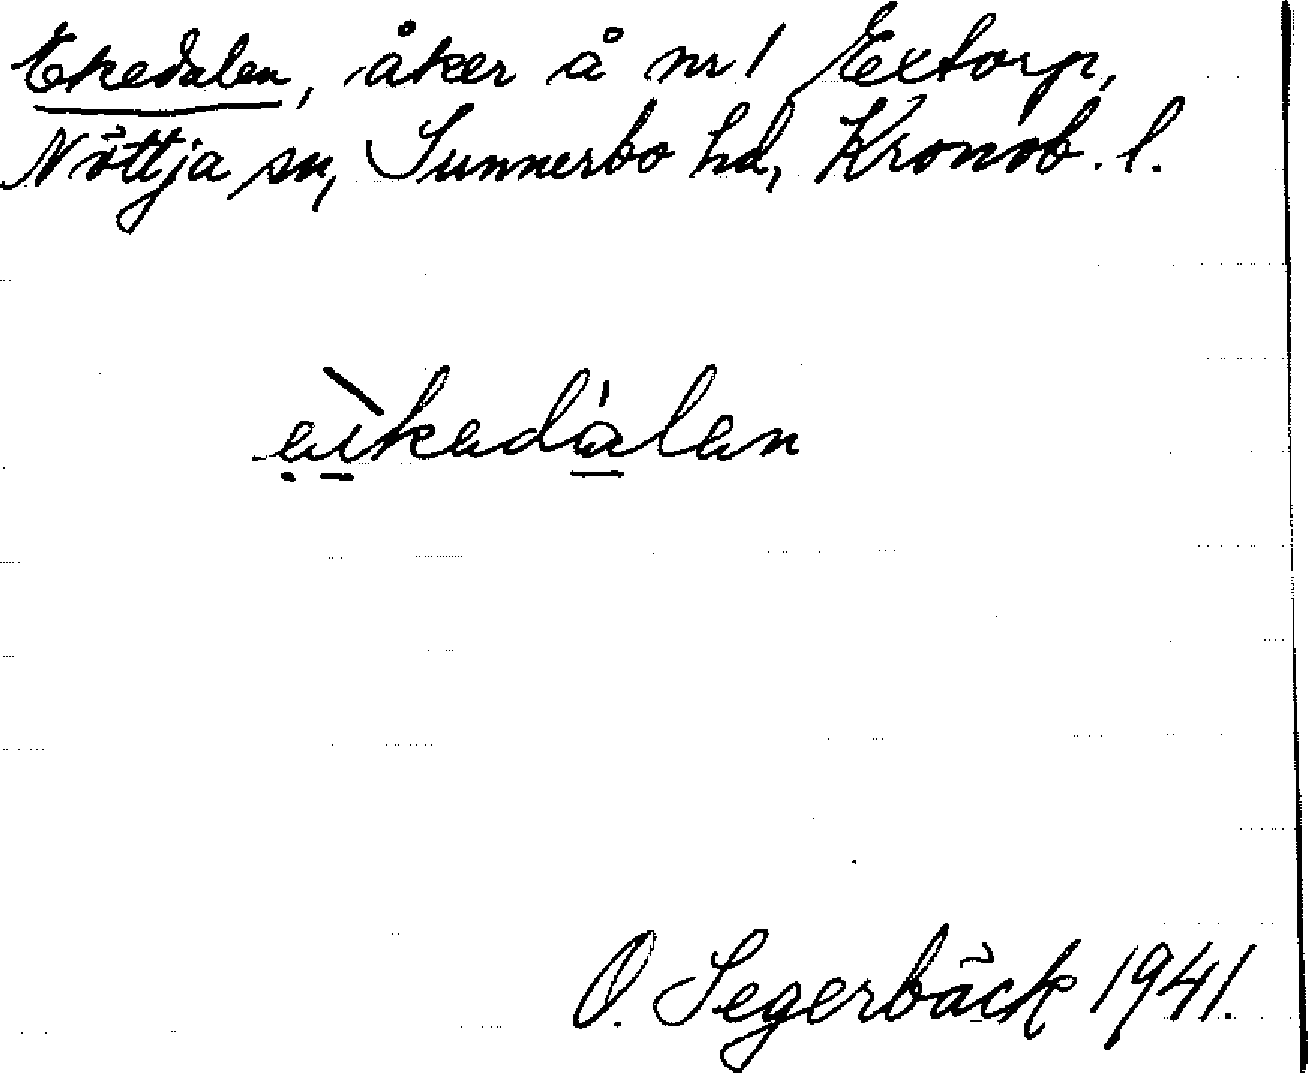 Ekedalen, åker å nr 1 Extorp,
Nöttja sn, Sunnerbo hd, Kronob. l.
eìkedálen
O. Segerbäck 1941.